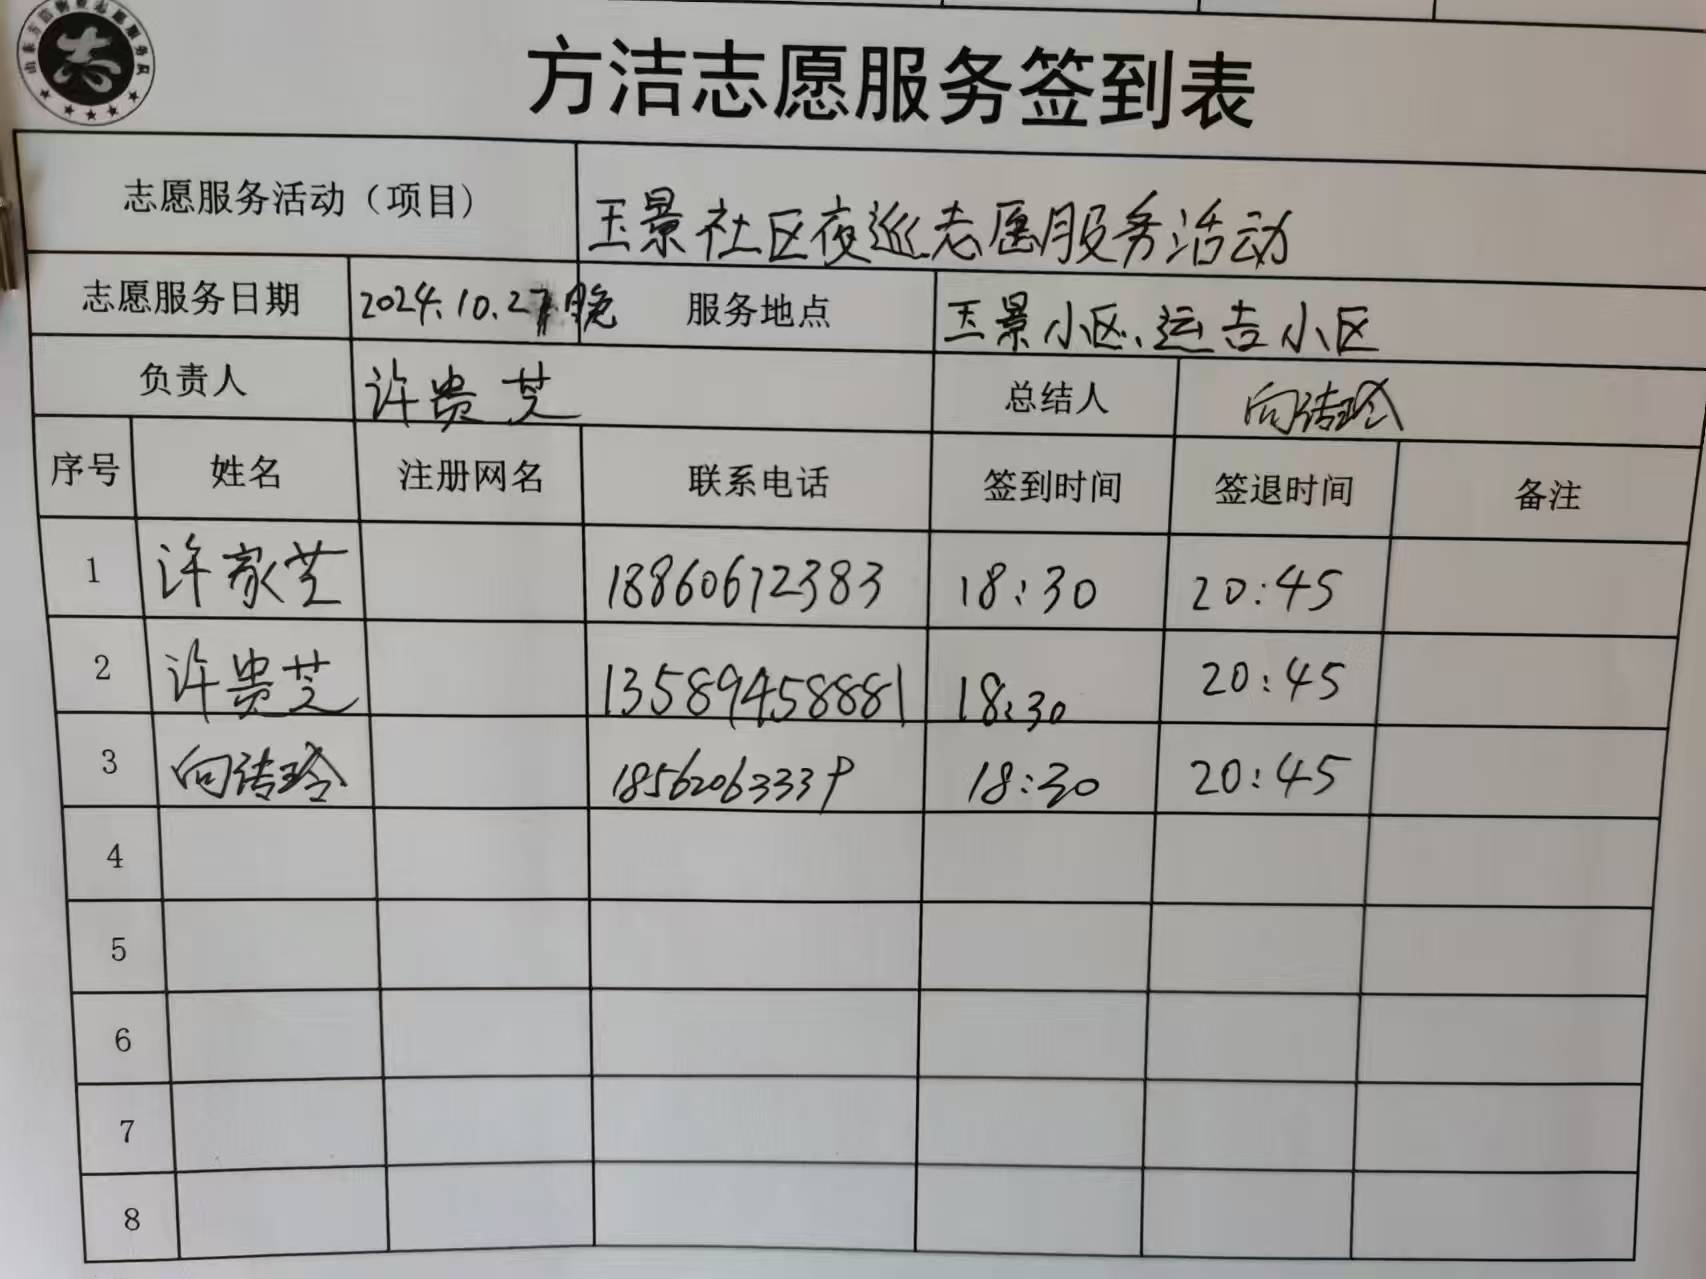 方洁志愿服务签到表
志愿服务活动（项目） 玉景社区夜巡志愿服务活动
志愿服务日期 2024.10.27晚 服务地点 玉景小区、运吉小区
负责人 许贵芝 总结人 向洁玲
序号 姓名 注册网名 联系电话 签到时间 签退时间 备注
1 许家芝 18860672383 18:30 20:45
2 许贵芝 13589458881 18:30 20:45
3 向洁玲 18562063339 18:30 20:45
4
5
6
7
8